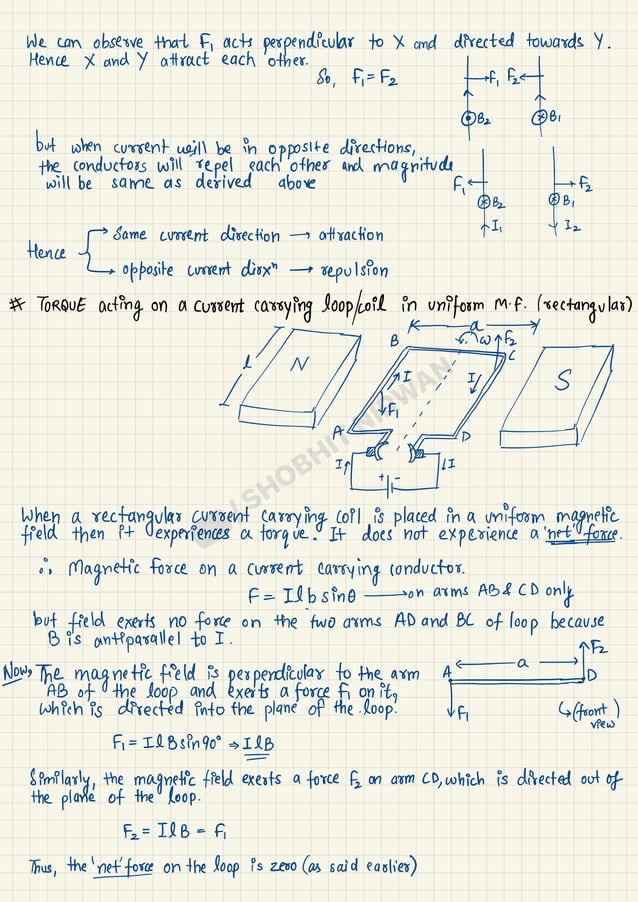 We can observe that F₁ acts perpendicular to X and directed towards Y.
Hence X and Y attract each other.
So, F₁ = F₂
F₁ F₂
B₂ B₁
but when current will be in opposite directions,
the conductors will repel each other and magnitude
will be same as derived above
F₁ F₂
B₂ B₁
I₁ I₂
Hence
Same current direction → attraction
opposite current dirxⁿ → repulsion
# TORQUE acting on a current carrying loop/coil in uniform M.F. (rectangular)
a
B ω F₂
C
l N I I S
F₁
A D
I I
+ -
SHOBHIT NIRWAN
When a rectangular current carrying coil is placed in a uniform magnetic
field then it experiences a torque. It does not experience a 'net' force.
∴ Magnetic force on a current carrying conductor.
F = Ilb sinθ → on arms AB & CD only
but field exerts no force on the two arms AD and BC of loop because
B is antiparallel to I.
Now, The magnetic field is perpendicular to the arm
AB of the loop and exerts a force f₁ on it,
which is directed into the plane of the loop.
F₂
A a D
F₁
↳ (front view)
F₁ = IlB sin90° ⇒ IlB
Similarly, the magnetic field exerts a force F₂ on arm CD, which is directed out of
the plane of the loop.
F₂ = IlB = F₁
Thus, the 'net' force on the loop is zero (as said earlier)